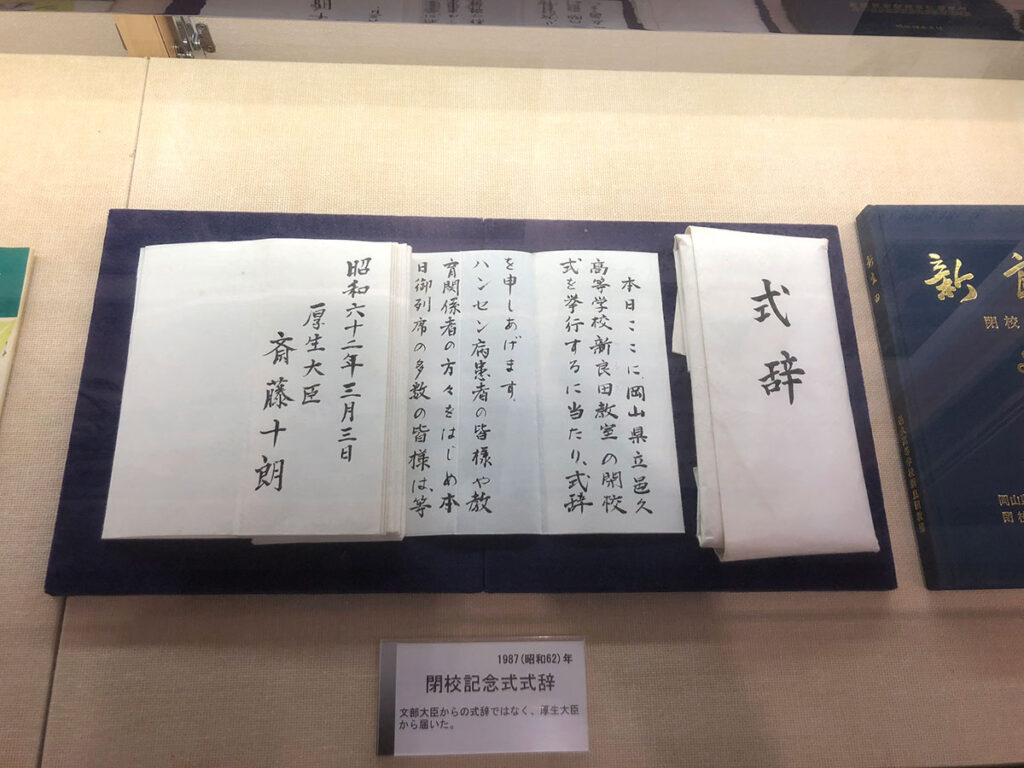 式辞
本日ここに岡山県立邑久
高等学校新良田教室の閉校
式を挙行するに当たり、式辞
を申しあげます。
ハンセン病患者の皆様や教
育関係者の方々をはじめ本
日御列席の多数の皆様は等
昭和六十二年三月三日
厚生大臣
斎藤十朗
新
閉校
岡山
閉校
新良田
1987(昭和62)年
閉校記念式式辞
文部大臣からの式辞ではなく、厚生大臣
から届いた。